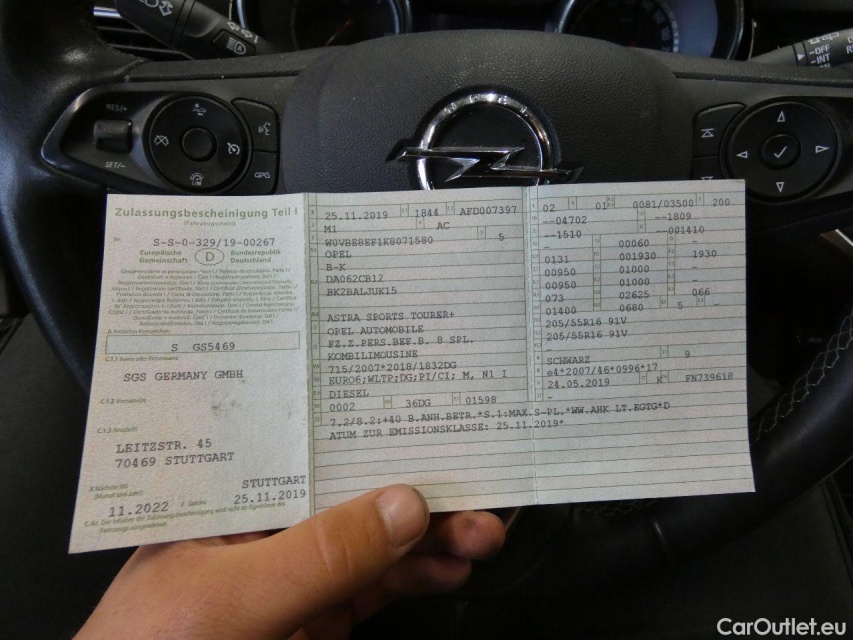 REG/+
SET/-
-OFF
-INT
Zulassungsbescheinigung Teil I
(Fahrzeugschein)
Nr. S-S-0-329/19-00267
Europäische Gemeinschaft D Bundesrepublik Deutschland
S GS5469
C.1.1 Name oder Firmenname
SGS GERMANY GMBH
C.1.2 Vorname(n)
C.1.3 Anschrift
LEITZSTR. 45
70469 STUTTGART
STUTTGART
11.2022 25.11.2019
25.11.2019 1844 AFD007397
M1 AC
W0VBE8EF1K8071580 5
OPEL
B-K
DA062CB12
BK2BALJUK15
ASTRA SPORTS TOURER+
OPEL AUTOMOBILE
FZ.Z.PERS.BEF.B. 8 SPL.
KOMBILIMOUSINE
715/2007*2018/1832DG
EURO6;WLTP;DG;PI/CI; M, N1 I
DIESEL
0002 36DG 01598
7.2/8.2:+40 B.ANH.BETR.*S.1:MAX.S-PL.*WW.AHK LT.EGTG*D
ATUM ZUR EMISSIONSKLASSE: 25.11.2019*
02 01 0081/03500 200
--04702 --1809
--1510 --001410
- 00060 -
0131 001930 1930
00950 01000 -
00950 01000 -
073 02625 066
01400 0680 5 -
205/55R16 91V
205/55R16 91V
-
SCHWARZ 9
e4*2007/46*0996*17
24.05.2019 K FN739618
-
CarOutlet.eu